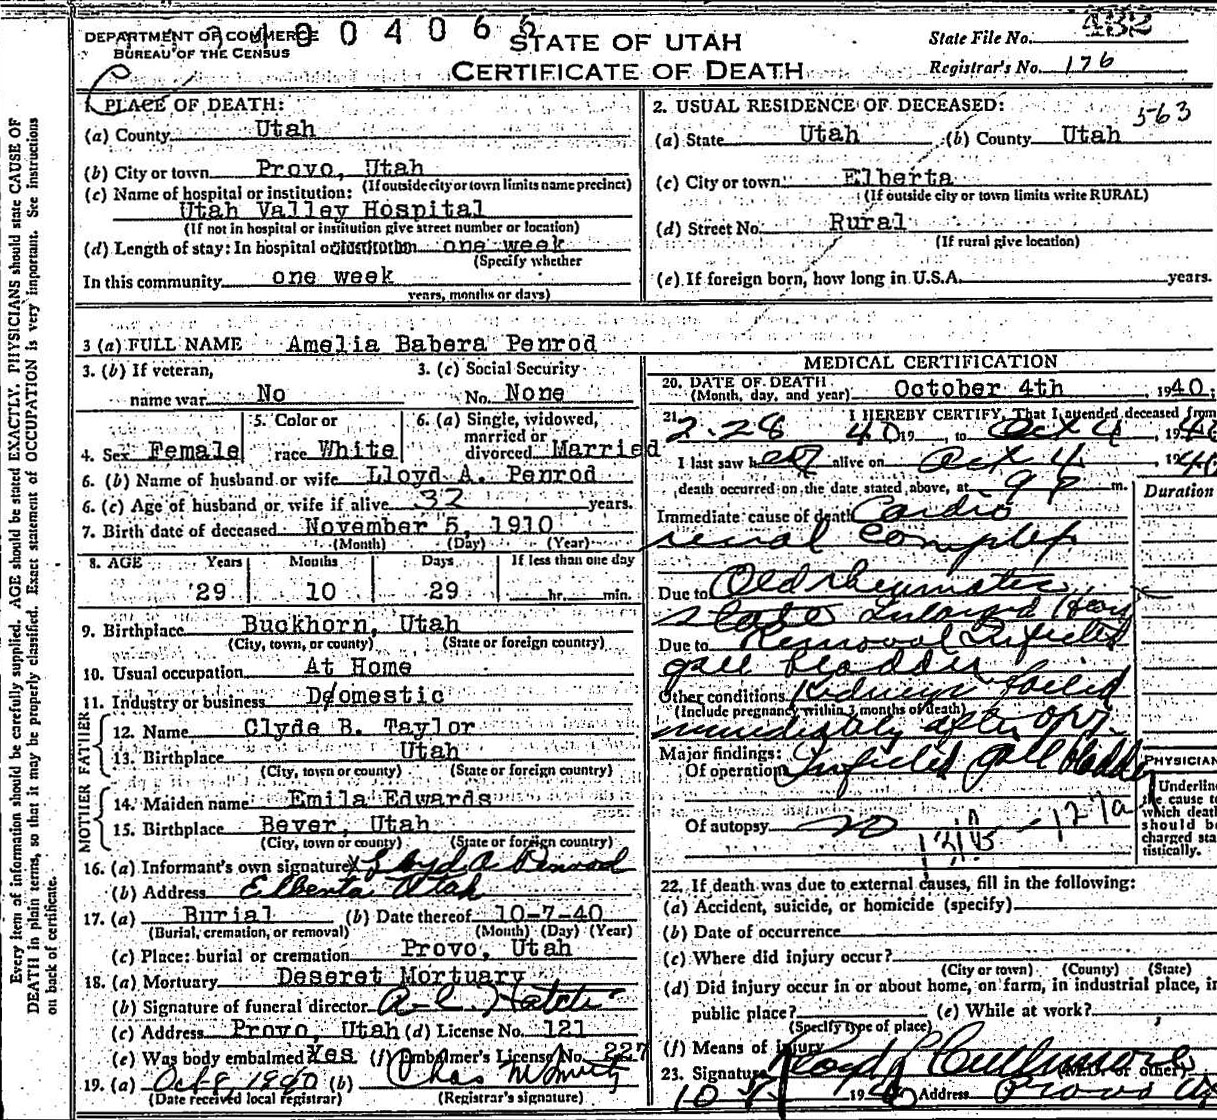 DEPARTMENT OF COMMERCE
BUREAU OF THE CENSUS
004065
STATE OF UTAH
CERTIFICATE OF DEATH
State File No. 432
Registrar's No. 176
1. PLACE OF DEATH:
(a) County Utah
(b) City or town Provo, Utah
(If outside city or town limits name precinct)
(c) Name of hospital or institution:
Utah Valley Hospital
(If not in hospital or institution give street number or location)
(d) Length of stay: In hospital or institution one week
(Specify whether
In this community one week
years, months or days)
2. USUAL RESIDENCE OF DECEASED:
563
(a) State Utah (b) County Utah
(c) City or town Elberta
(If outside city or town limits write RURAL)
(d) Street No. Rural
(If rural give location)
(e) If foreign born, how long in U.S.A. years.
3 (a) FULL NAME Amelia Babera Penrod
3. (b) If veteran,
name war No
3. (c) Social Security
No. None
4. Sex Female
5. Color or
race White
6. (a) Single, widowed,
married or
divorced Married
6. (b) Name of husband or wife Lloyd A. Penrod
6. (c) Age of husband or wife if alive 32 years.
7. Birth date of deceased November 5, 1910
(Month) (Day) (Year)
8. AGE Years Months Days If less than one day
29 10 29 hr. min.
9. Birthplace Buckhorn, Utah
(City, town, or county) (State or foreign country)
10. Usual occupation At Home
11. Industry or business Domestic
FATHER
12. Name Clyde B. Taylor
13. Birthplace Utah
(City, town or county) (State or foreign country)
MOTHER
14. Maiden name Emila Edwards
15. Birthplace Bever, Utah
(City, town or county) (State or foreign country)
16. (a) Informant's own signature x Lloyd A Penrod
(b) Address Elberta Utah
17. (a) Burial (b) Date thereof 10-7-40
(Burial, cremation, or removal) (Month) (Day) (Year)
(c) Place: burial or cremation Provo, Utah
18. (a) Mortuary Deseret Mortuary
(b) Signature of funeral director
(c) Address Provo, Utah (d) License No. 121
(e) Was body embalmed Yes (f) Embalmer's License No. 227
19. (a) Oct 8, 1940 (b) Chas
(Date received local registrar) (Registrar's signature)
MEDICAL CERTIFICATION
20. DATE OF DEATH
(Month, day, and year) October 4th, 1940;
21. I HEREBY CERTIFY, That I attended deceased from
2-28 40 19 , to Oct 4, 1940
I last saw her alive on Oct 4, 1940
death occurred on the date stated above, at 9 P m.
Duration
Immediate cause of death Cardio
renal complex
Due to Old rheumatic
state Enlarged Heart
Due to Removal Infected
gall bladder
Other conditions Kidneys failed
(Include pregnancy within 3 months of death)
immediately after opr.
Major findings:
Of operation Infected gall bladder
Of autopsy no
127a
PHYSICIAN
Underline
the cause to
which death
should be
charged sta
tistically.
22. If death was due to external causes, fill in the following:
(a) Accident, suicide, or homicide (specify)
(b) Date of occurrence
(c) Where did injury occur?
(City or town) (County) (State)
(d) Did injury occur in or about home, on farm, in industrial place, in
public place? (e) While at work?
(Specify type of place)
(f) Means of injury
23. Signature Lloyd L Cullimore (M.D. or other)
1940 Address Provo Ut
Every item of information should be carefully supplied. AGE should be stated EXACTLY. PHYSICIANS should state CAUSE OF
DEATH in plain terms, so that it may be properly classified. Exact statement of OCCUPATION is very important. See instructions
on back of certificate.